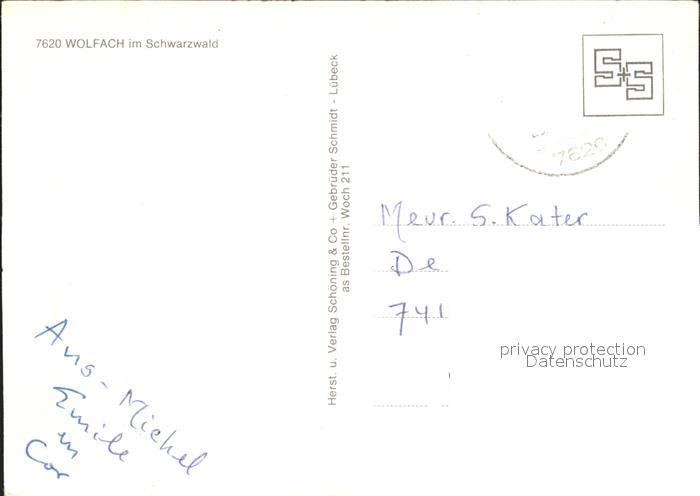 7620 WOLFACH im Schwarzwald
S+S
7620
Herst. u. Verlag Schöning & Co + Gebrüder Schmidt - Lübeck
as Bestellnr. Woch 211
Mevr. S. Kater
De
741
privacy protection
Datenschutz
Ans - Michel
Emile
en
Cor